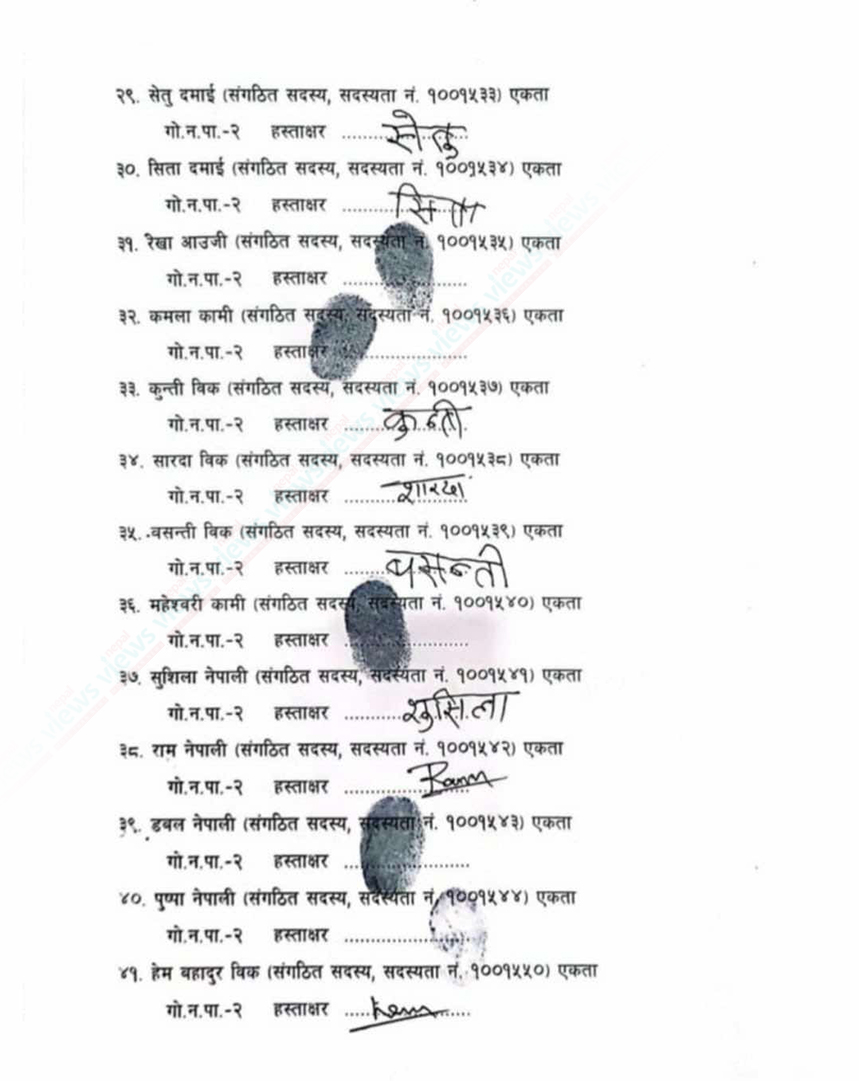 २९. सेतु दमाई (संगठित सदस्य, सदस्यता नं. १००१५३३) एकता
गो.न.पा.-२ हस्ताक्षर ........सेतु
३०. सिता दमाई (संगठित सदस्य, सदस्यता नं. १००१५३४) एकता
गो.न.पा.-२ हस्ताक्षर ........सिता
३१. रेखा आउजी (संगठित सदस्य, सदस्यता नं. १००१५३५) एकता
गो.न.पा.-२ हस्ताक्षर ........................
३२. कमला कामी (संगठित सदस्य, सदस्यता नं. १००१५३६) एकता
गो.न.पा.-२ हस्ताक्षर ........................
३३. कुन्ती विक (संगठित सदस्य, सदस्यता नं. १००१५३७) एकता
गो.न.पा.-२ हस्ताक्षर ........कुन्ती
३४. सारदा विक (संगठित सदस्य, सदस्यता नं. १००१५३८) एकता
गो.न.पा.-२ हस्ताक्षर ........शारदा
३५. वसन्ती विक (संगठित सदस्य, सदस्यता नं. १००१५३९) एकता
गो.न.पा.-२ हस्ताक्षर ........वसन्ती
३६. महेश्वरी कामी (संगठित सदस्य, सदस्यता नं. १००१५४०) एकता
गो.न.पा.-२ हस्ताक्षर ........................
३७. सुशिला नेपाली (संगठित सदस्य, सदस्यता नं. १००१५४१) एकता
गो.न.पा.-२ हस्ताक्षर ...........शुसिला
३८. राम नेपाली (संगठित सदस्य, सदस्यता नं. १००१५४२) एकता
गो.न.पा.-२ हस्ताक्षर ...............Ram
३९. डबल नेपाली (संगठित सदस्य, सदस्यता नं. १००१५४३) एकता
गो.न.पा.-२ हस्ताक्षर ........................
४०. पुष्पा नेपाली (संगठित सदस्य, सदस्यता नं. १००१५४४) एकता
गो.न.पा.-२ हस्ताक्षर ........................
४१. हेम बहादुर विक (संगठित सदस्य, सदस्यता नं. १००१५५०) एकता
गो.न.पा.-२ हस्ताक्षर ........................